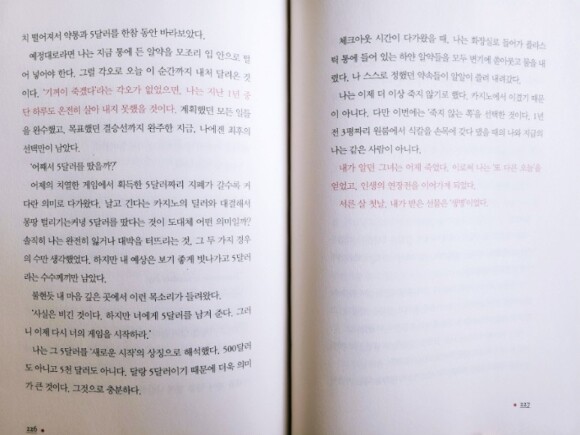 치 떨어져서 약통과 5달러를 한참 동안 바라보았다.
예정대로라면 나는 지금 통에 든 알약을 모조리 입 안으로 털
어 넣어야 한다. 그럴 각오로 오늘 이 순간까지 내처 달려온 것
이다. '기꺼이 죽겠다'라는 각오가 없었으면, 나는 지난 1년 중
단 하루도 온전히 살아 내지 못했을 것이다. 계획했던 모든 일들
을 완수했고, 목표했던 결승선까지 완주한 지금, 나에겐 최후의
선택만이 남았다.
'어째서 5달러를 땄을까?'
어제의 치열한 게임에서 획득한 5달러짜리 지폐가 갈수록 커
다란 의미로 다가왔다. 날고 긴다는 카지노의 딜러와 대결해서
몽땅 털리기는커녕 5달러를 땄다는 것이 도대체 어떤 의미일까?
솔직히 나는 완전히 잃거나 대박을 터뜨리는 것, 그 두 가지 경우
의 수만 생각했었다. 하지만 내 예상은 보기 좋게 빗나가고 5달러
라는 수수께끼만 남았다.
불현듯 내 마음 깊은 곳에서 이런 목소리가 들려왔다.
'사실은 비긴 것이다. 하지만 너에게 5달러를 남겨 준다. 그러
니 이제 다시 너의 게임을 시작하라.'
나는 그 5달러를 '새로운 시작'의 상징으로 해석했다. 500달러
도 아니고 5천 달러도 아니다. 달랑 5달러이기 때문에 더욱 의미
가 큰 것이다. 그것으로 충분하다.
226
체크아웃 시간이 다가왔을 때, 나는 화장실로 들어가 플라스
틱 통에 들어 있는 하얀 알약들을 모두 변기에 쏟아붓고 물을 내
렸다. 나 스스로 정했던 약속들이 알알이 쓸려 내려갔다.
나는 이제 더 이상 죽지 않기로 했다. 카지노에서 이겼기 때문
이 아니다. 다만 이번에는 '죽지 않는 쪽'을 선택한 것이다. 1년
전 3평짜리 원룸에서 식칼을 손목에 갖다 댔을 때의 나와 지금의
나는 같은 사람이 아니다.
내가 알던 그녀는 어제 죽었다. 이로써 나는 '또 다른 오늘'을
얻었고, 인생의 연장전을 이어가게 되었다.
서른 살 첫날, 내가 받은 선물은 '생명'이었다.
227